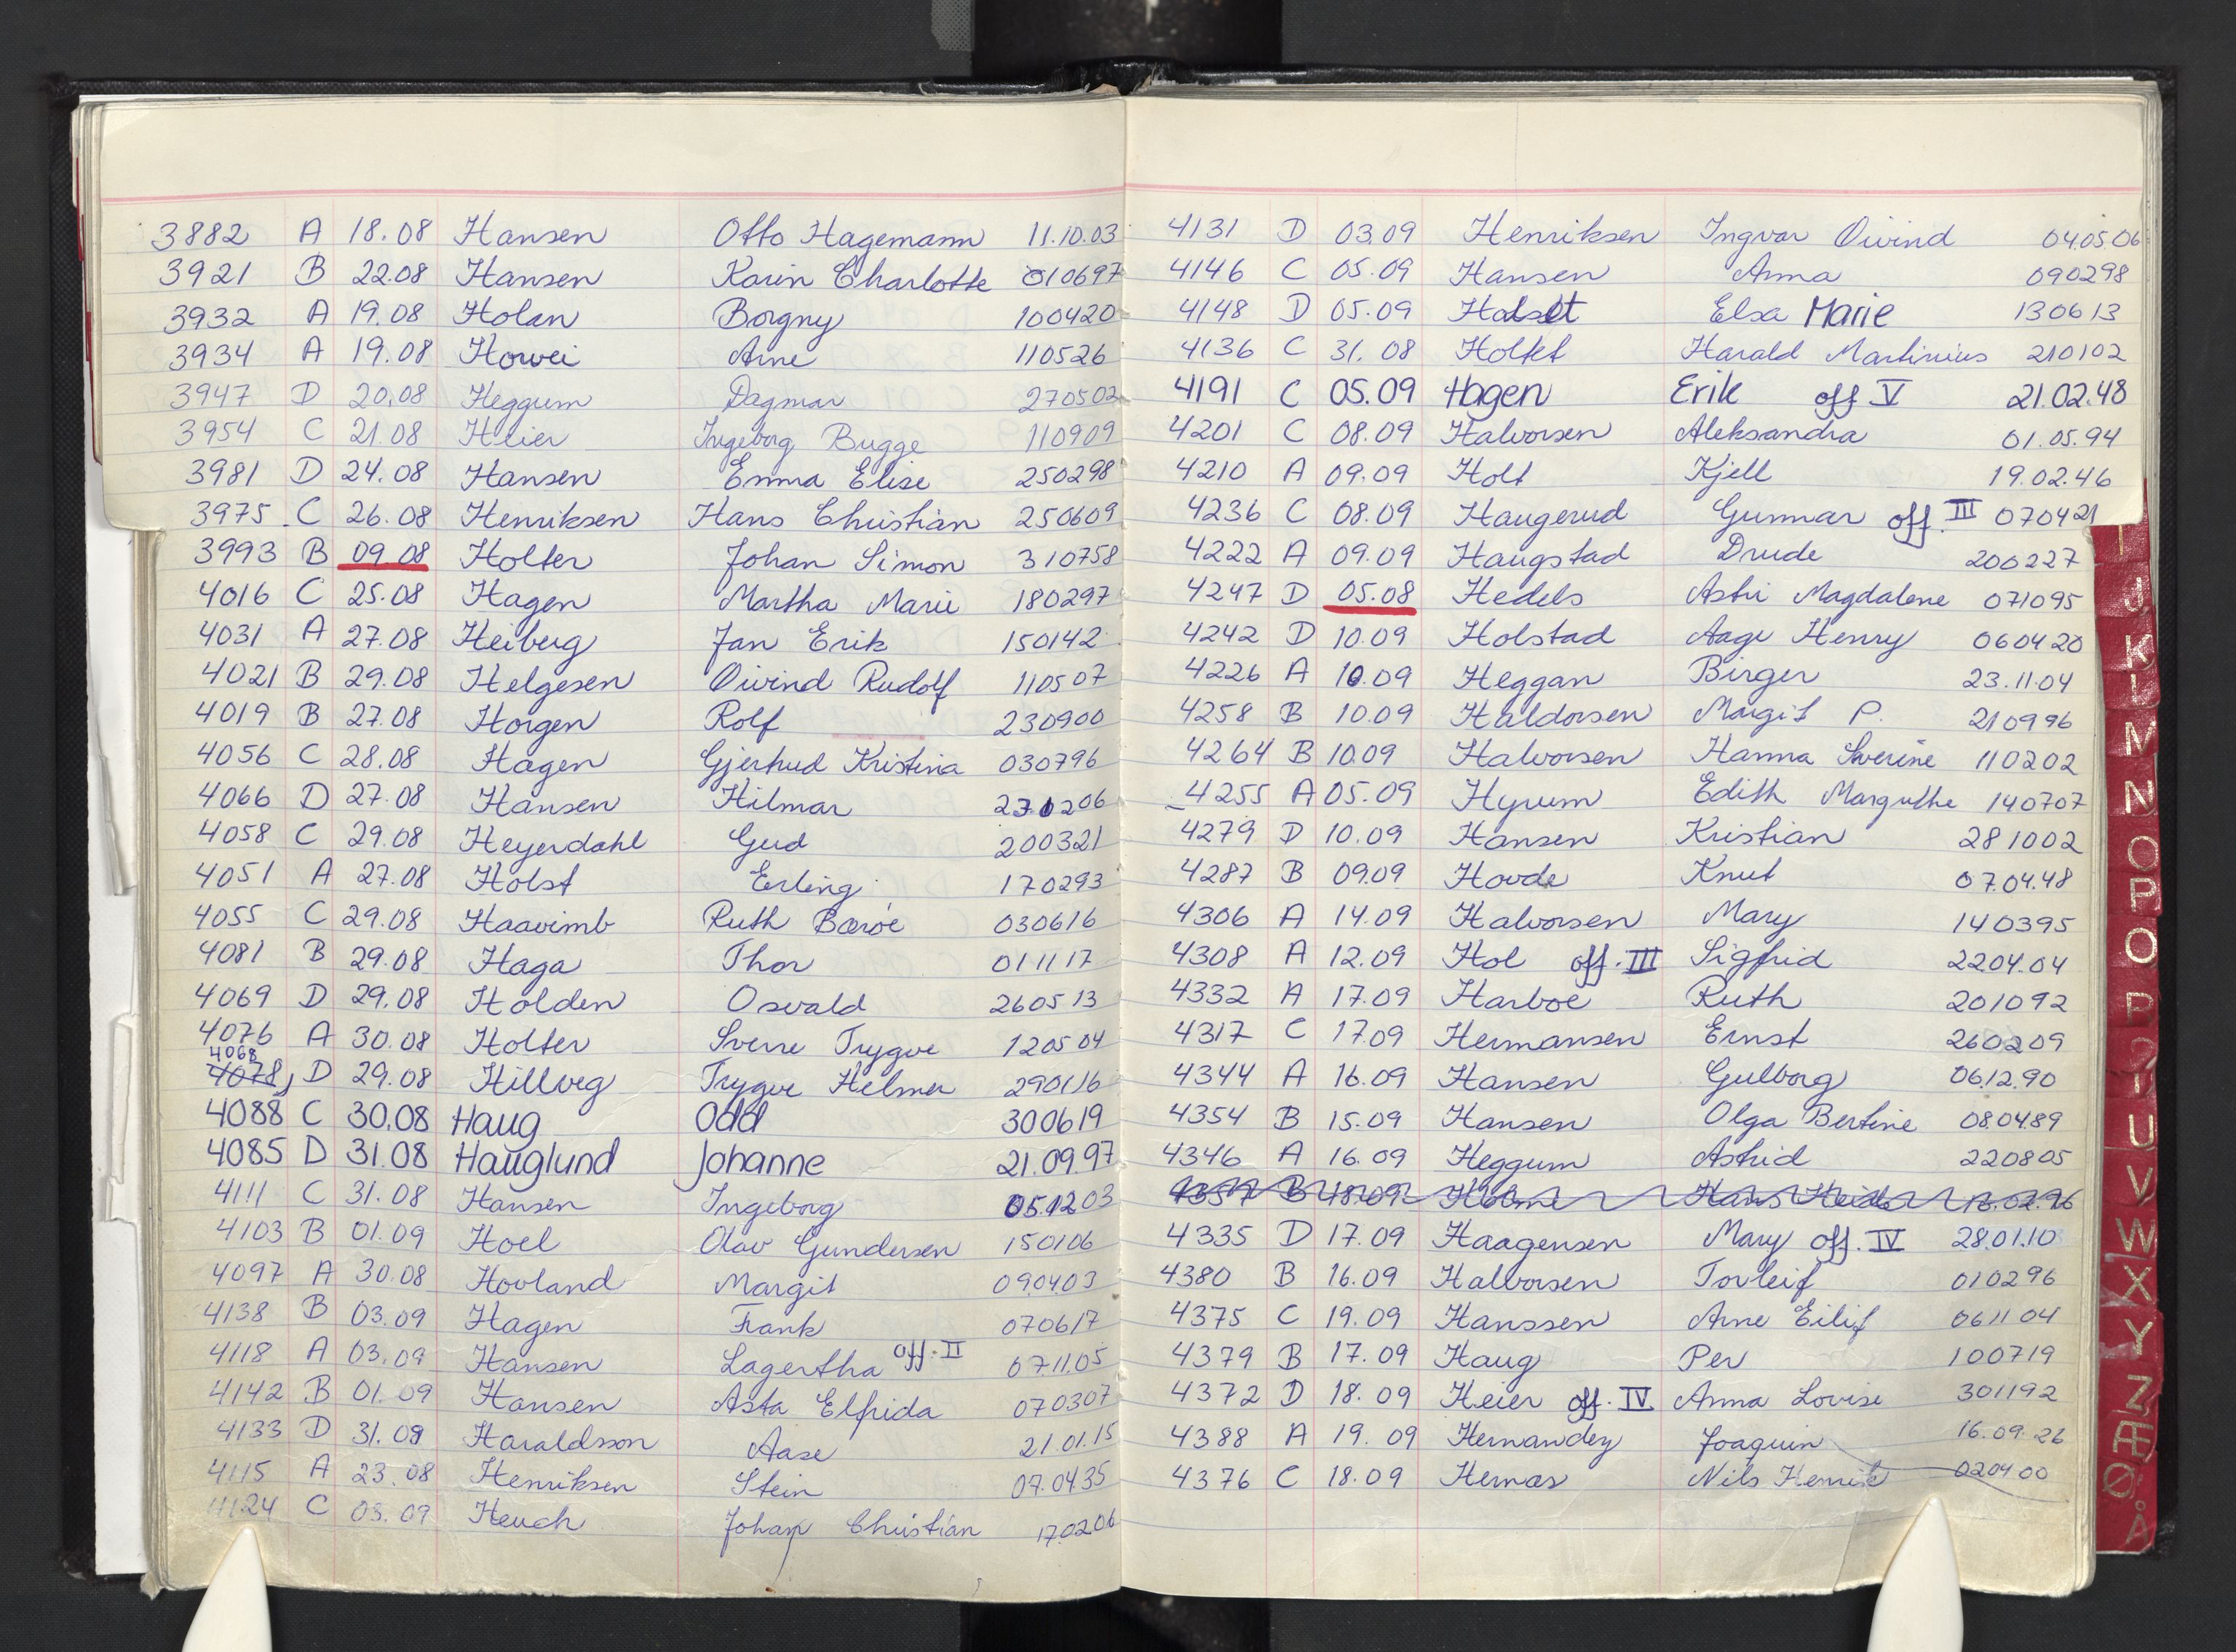 3882 A 18.08 Hansen Otto Hagemann 11.10.03
3921 B 22.08 Hansen Karin Charlotte 010697
3932 A 19.08 Holan Borgny 100420
3934 A 19.08 Howei Arne 110526
3947 D 20.08 Heggum Dagmar 270502
3954 C 21.08 Heier Ingeborg Bugge 110909
3981 D 24.08 Hansen Emma Elise 250298
3975 C 26.08 Henriksen Hans Christian 250609
3993 B 09.08 Holter Johan Simon 310758
4016 C 25.08 Hagen Martha Marie 180297
4031 A 27.08 Heiberg Jan Erik 150142
4021 B 29.08 Helgesen Oivind Rudolf 110507
4019 B 27.08 Horgen Rolf 230900
4056 C 28.08 Hagen Gjertrud Kristina 030796
4066 D 27.08 Hansen Hilmar
4058 C 29.08 Heyerdahl Gerd 200321
4051 A 27.08 Holst Erling 170293
4055 C 29.08 Haavimb Ruth Barøe 030616
4081 B 29.08 Haga Thor 011117
4069 D 29.08 Holden Osvald 260513
4076 A 30.08 Holter Sverre Trygve 120504
4068
4078 D 29.08 Hillveg Trygve Helmer 290116
4088 C 30.08 Haug Odd 300619
4085 D 31.08 Hauglund Johanne 21.09.97
4111 C 31.08 Hansen Ingeborg 05.12 03
4103 B 01.09 Hoel Olav Gundersen 150106
4097 A 30.08 Hovland Margit 090403
4138 B 03.09 Hagen Frank 070617
4118 A 03.09 Hansen Lagertha off. II 07.11.05
4142 B 01.09 Hansen Asta Elfrida 070307
4133 D 31.08 Haraldsson Aase 21.01.15
4115 A 23.08 Henriksen Stein 07.0435
4124 C 03.09 Heuch Johan Christian 170206
4131 D 03.09 Henriksen Ingvar Oivind 04.05.06
4146 C 05.09 Hansen Anna 090298
4148 D 05.09 Halset Elsa Marie 130613
4136 C 31.08 Holtet Harald Martinius 210102
4191 C 05.09 Hagen Erik off V 21.02.48
4201 C 08.09 Halvorsen Aleksandra 01.05.94
4210 A 09.09 Holt Kjell 19.02.46
4236 C 08.09 Haugerud Gunnar off. III 070421
4222 A 09.09 Haugstad Drude 200227
4247 D 05.08 Hedels Astri Magdalene 071095
4242 D 10.09 Holstad Aage Henry 060420
4226 A 10.09 Heggan Birger 23.11.04
4258 B 10.09 Haldorsen Margit P. 210996
4264 B 10.09 Halvorsen Hanna Severine 110202
4255 A 05.09 Hyrum Edith Margrethe 140707
4279 D 10.09 Hansen Kristian 281002
4287 B 09.09 Hovde Knut 07.04.48
4306 A 14.09 Halvorsen Mary 140395
4308 A 12.09 Hol off. III Sigfrid 2204.04
4332 A 17.09 Harboe Ruth 201092
4317 C 17.09 Hermansen Ernst 260209
4344 A 16.09 Hansen Gulborg 06.12.90
4354 B 15.09 Hansen Olga Bertine 080489
4346 A 16.09 Heggum Astrid 220805
4357 B 18.09 Holme Hans
4335 D 17.09 Haagensen Mary off. IV 28.01.10
4380 B 16.09 Halvorsen Torleif 010296
4375 C 19.09 Hanssen Arne Eilif 061104
4379 B 17.09 Haug Per 100719
4372 D 18.09 Heier off. IV Anna Lovise 301192
4388 A 19.09 Hernandez Joaquin 16.09.26
4376 C 18.09 Hernæs Nils Henrik 020400
I
J
K
L
M
N
O
P
Q
R
U
V
W
X
Y
Z
Æ
Ø
Å